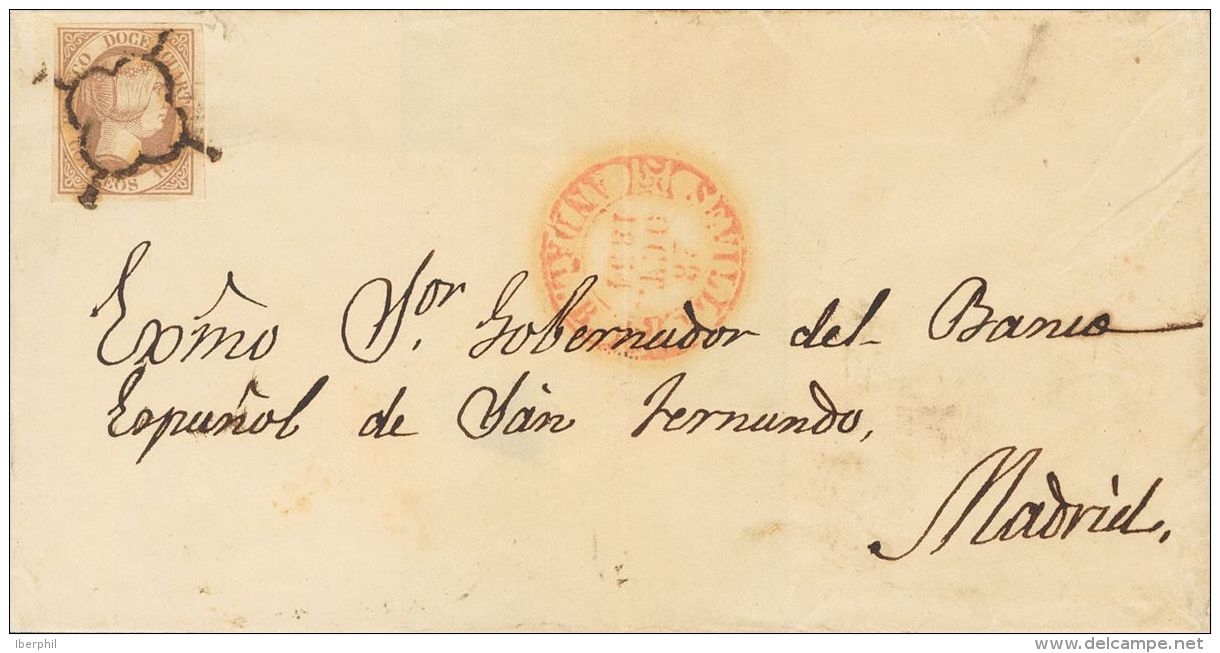 DOCE CUART
CO
CORREOS
SEVILLA
ANDAL. B.
28
OCT
1851
Exmo Sor. Gobernador del Banco
Español de San Fernando,
Madrid.
Iberphil
delcampe.net